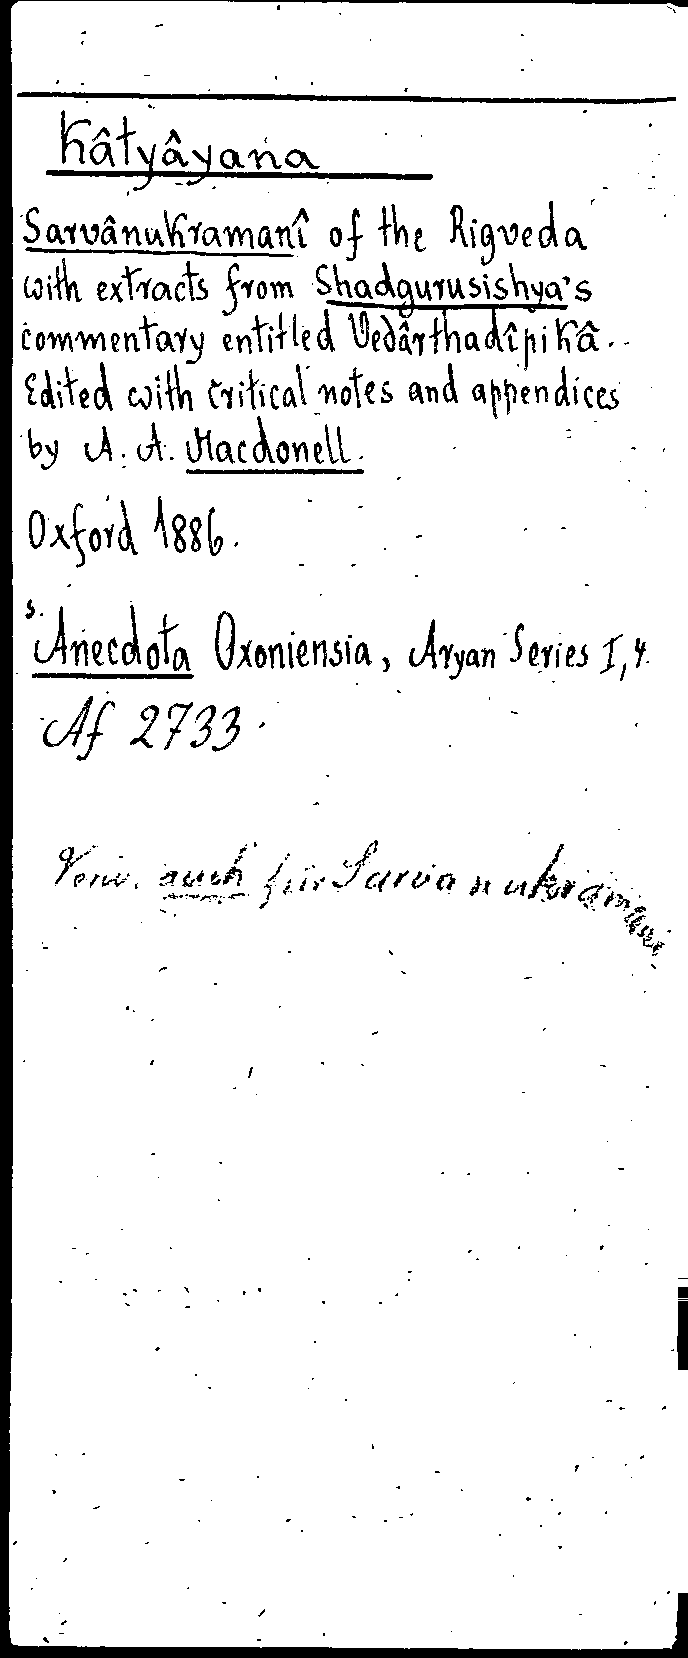 Kâtyâyana
Sarvânukramanî of the Rigveda
with extracts from Shadgurusishya's
commentary entitled Vedârthadîpikâ.
Edited with critical notes and appendices
by A. A. Macdonell.
Oxford 1886.
s. Anecdota Oxoniensia, Aryan Series I,4.
Af 2733
Verw. auch für Sarvanukramani